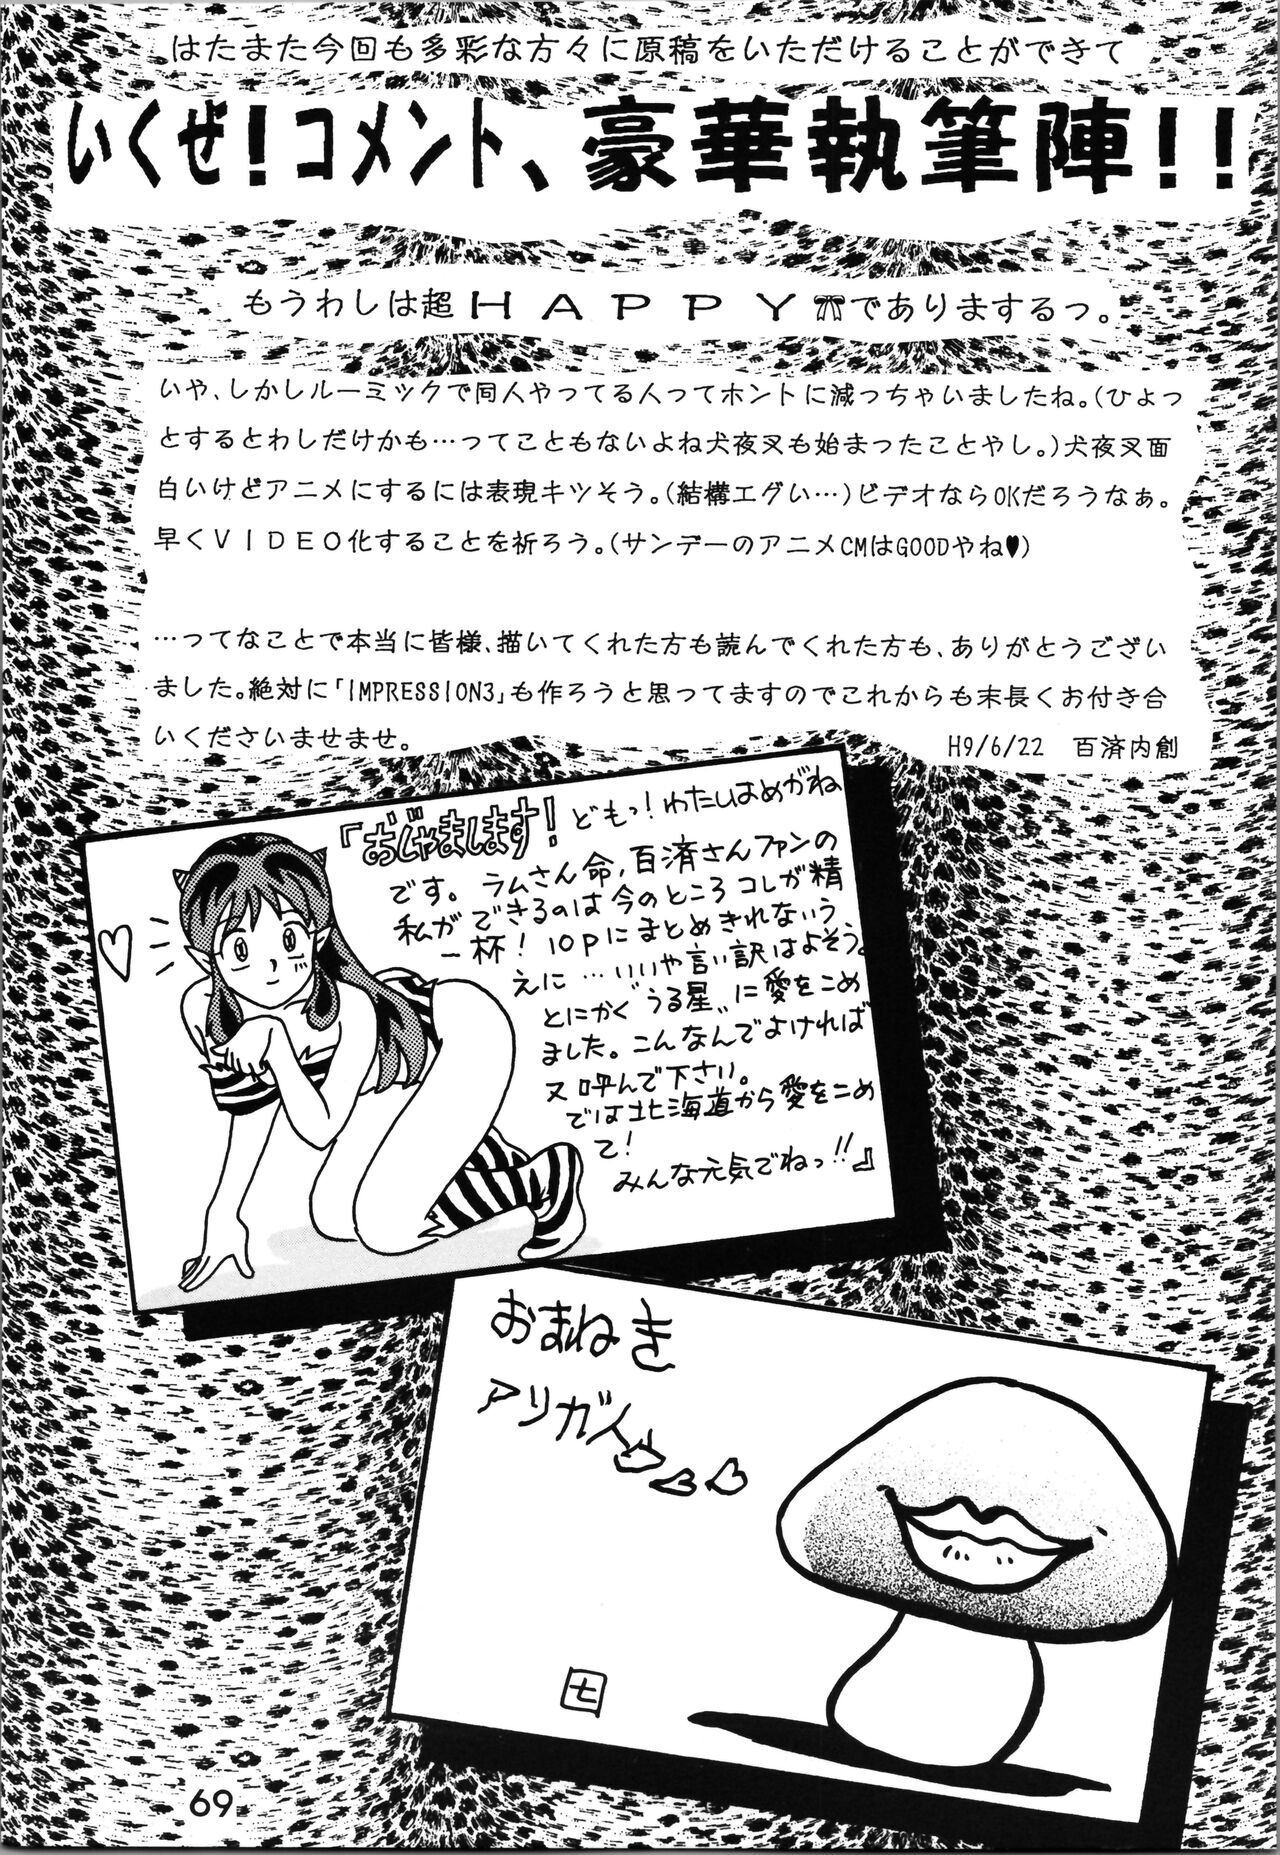 はたまた今回も多彩な方々に原稿をいただけることができて
いくぜ！コメント、豪華執筆陣！！
もうわしは超HAPPYでありまするっ。
いや、しかしルーミックで同人やってる人ってホントに減っちゃいましたね。（ひょっ
とするとわしだけかも…ってこともないよね犬夜叉も始まったことやし。）犬夜叉面
白いけどアニメにするには表現キツそう。（結構エグい…）ビデオならOKだろうなぁ。
早くVIDEO化することを祈ろう。（サンデーのアニメCMはGOODやね♥）
…ってなことで本当に皆様、描いてくれた方も読んでくれた方も、ありがとうござい
ました。絶対に「IMPRESSION3」も作ろうと思ってますのでこれからも末長くお付き合
いくださいませませ。
H9/6/22　百済内創
「おじゃまします！どもっ！わたしはめがね
です。ラムさん命，百済さんファンの
私ができるのは今のところコレが精
一杯！10Pにまとめきれないう
えに…いいや言い訳はよそう。
とにかく“うる星”に愛をこめ
ました。こんなんでよければ
又呼んで下さい。
では北海道から愛をこめ
て！
みんな元気でねっ!!』
おまねき
アリガトウ♡♡
七
69